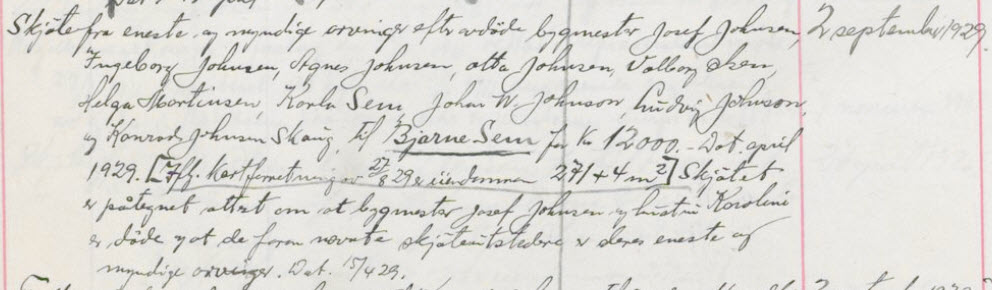 Skjøte fra eneste og myndige arvinger efter avdøde bygmester Josef Johnsen, 2 september 1929.
Ingeborg Johnsen, Agnes Johnsen, Otta Johnsen, Valborg Olsen,
Helga Mortinsen, Karla Sem, Johan W. Johnson, Ludvig Johnson,
og Konrad Johnsen Skaug, til Bjarne Sem for Kr 12000.- Dat. april
1929. [Iflg. Kartforretning av 27/8 29 er eiendommen 271+4 m²] Skjøtet
er påtegnet attest om at bygmester Josef Johnsen og hustru Karoline
er døde og at de foran nevnte skjøteutstedere er deres eneste og
myndige arvinger. Dat. 15/4 29.